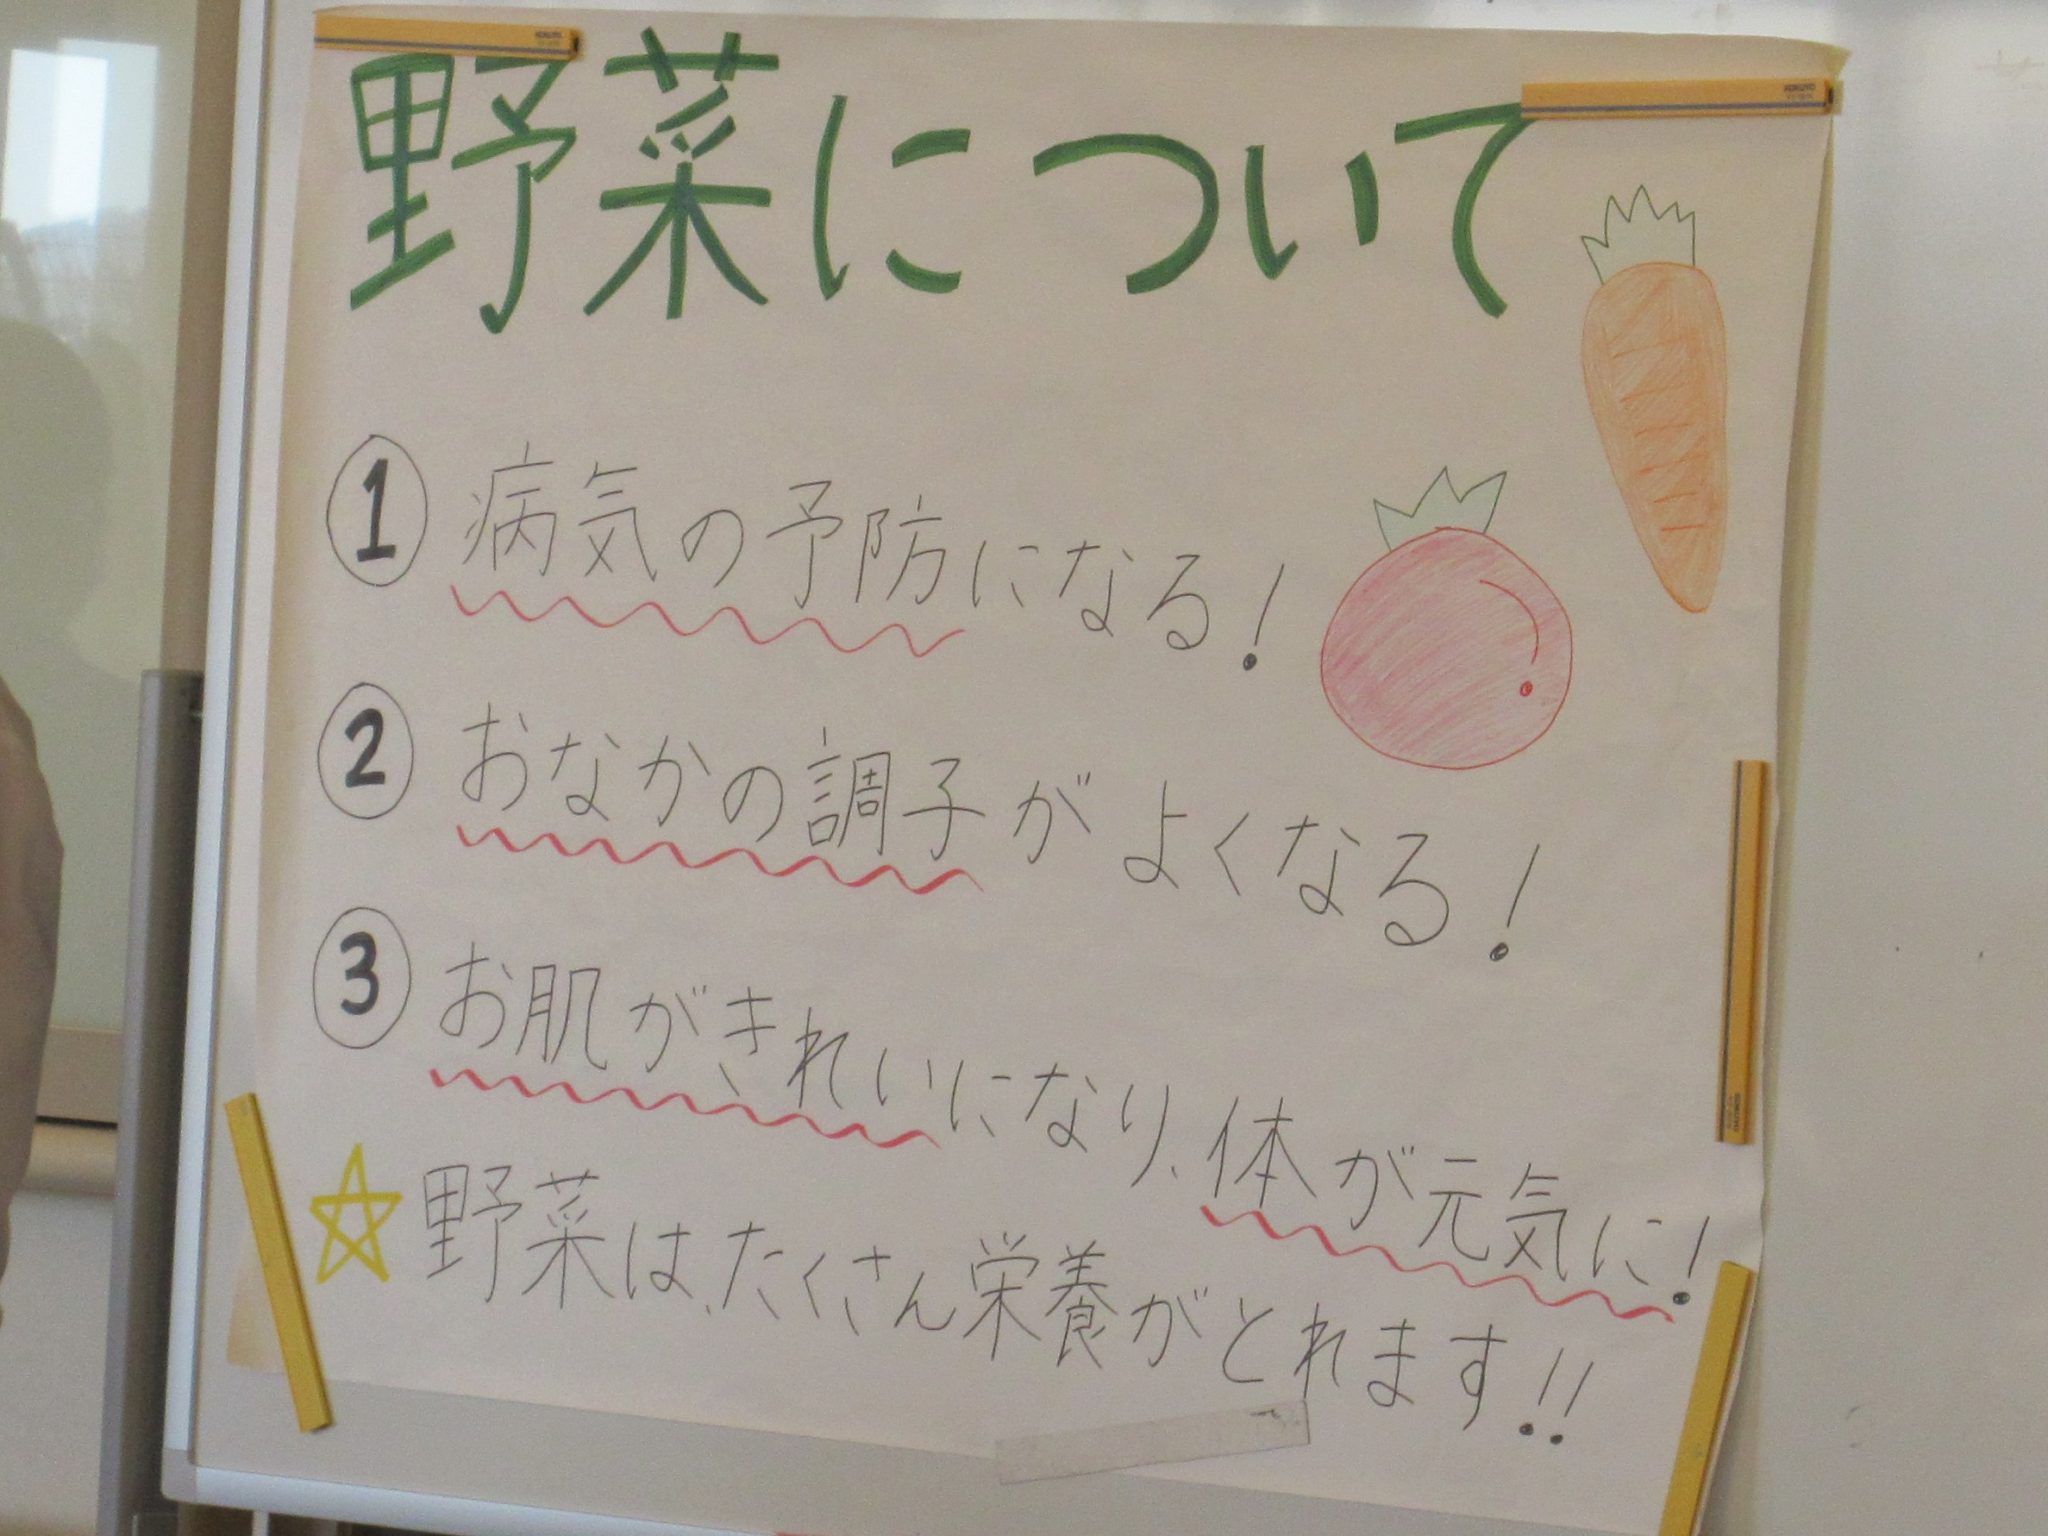 野菜について
① 病気の予防になる!
② おなかの調子がよくなる!
③ お肌がきれいになり、体が元気に!
☆ 野菜は、たくさん栄養がとれます!!
KOKUYO
KOKUYO
KOKUYO